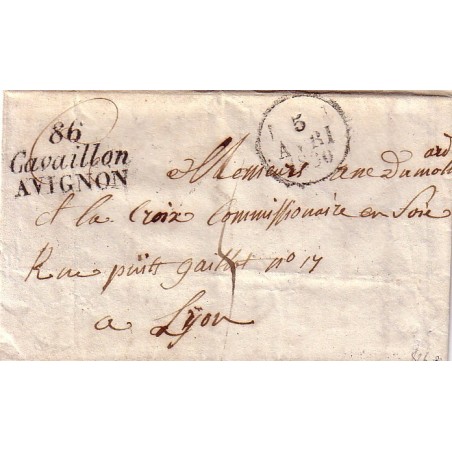 86
Cavaillon
AVIGNON
5
AVRI
ard
a Messieurs ane Dumol
et la Croix Commissionaire en Soie
Rue puitt gaillot no 17
a Lyon